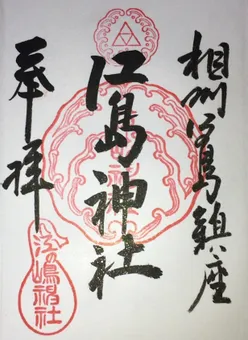 相州江島鎮座
江島神社
奉拝
江嶋神社